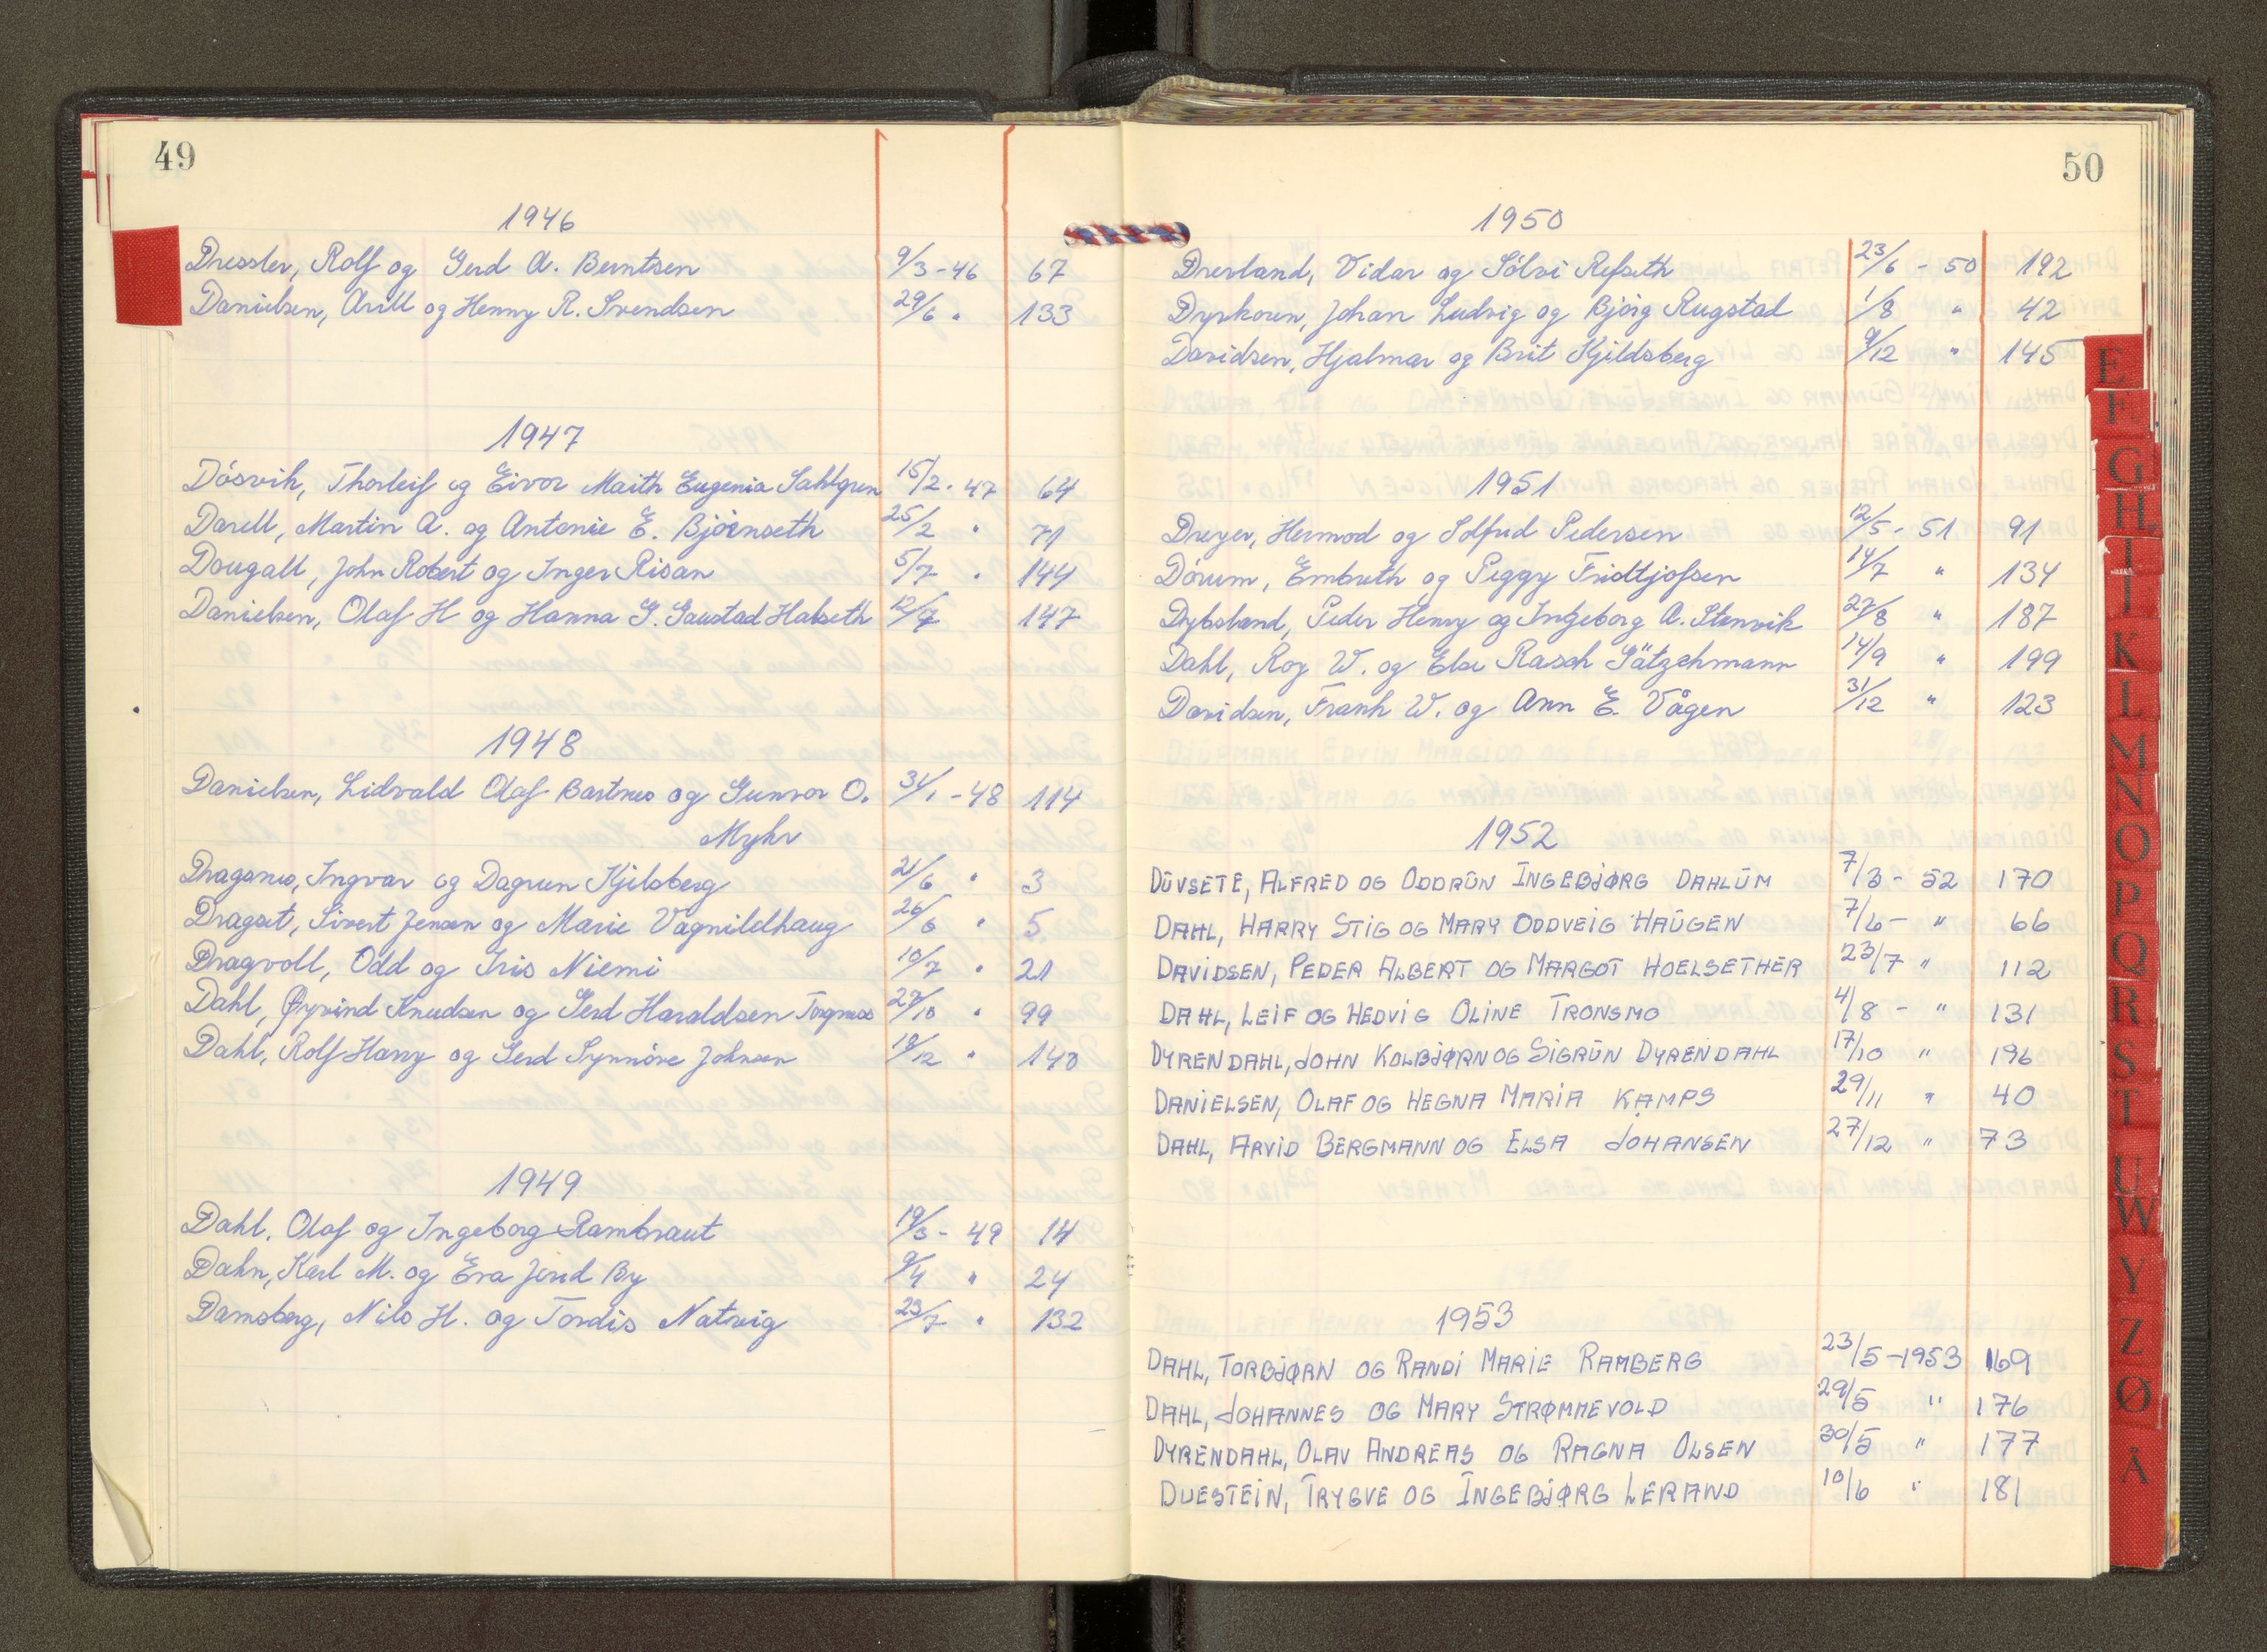 49
1946
Dressler, Rolf og Gerd A. Berntsen 9/3-46 67
Danielsen, Arill og Henny R. Svendsen 29/6 " 133
1947
Dósvik, Thorleif og Eivor Maith Eugenia Sahlgren 15/2 - 47 64
Darell, Martin A. og Antonie E. Bjórnseth 25/2 " 71
Dougall, John Robert og Inger Risan 5/7 " 144
Danielsen, Olaf H og Hanna G. Gaustad Halseth 12/7 147
1948
Danielsen, Lidvald Olaf Bartnes og Gunvor O. 31/1 - 48 114
Myhr
Dragsnes, Ingvar og Dagrun Kjelsberg 21/6 " 3
Dragset, Sivert Jensen og Marie Vognildhaug 26/6 " 5
Dragvoll, Odd og Iris Niemi 10/7 " 21
Dahl, Øyvind Knudsen og Gerd Haraldsen Torgnes 27/10 " 99
Dahl, Rolf Harry og Gerd Synnóve Johnsen 18/12 " 140
1949
Dahl, Olaf og Ingeborg Rambraut 19/3 - 49 14
Dahn, Karl M. og Eva Jorid By 9/4 " 24
Damsberg, Nils H. og Tordis Natvig 23/7 " 132
50
1950
Vidar og Sólvi Refseth 23/6 - 50 192
Dyrkoren, Johan Ludvig og Bjórg Rugstad 1/8 " 42
Davidsen, Hjalmar og Brit Kjeldsberg 9/12 " 145
1951
Dreyer, Hermod og Solfrid Pedersen 12/5 - 51 91
Dórum, Embreth og Peggy Fridtjofsen 14/7 " 134
Dybsland, Peder Henry og Ingeborg A. Stenvik 27/8 " 187
Dahl, Roy W. og Else Rasch Gätzschmann 14/9 " 199
Davidsen, Frank W. og Ann E. Vågen 31/12 " 123
1952
DŪVSETE, ALFRED OG ODDRŪN INGEBJØRG DAHLŪM 7/3 - 52 170
DAHL, HARRY STIG OG MARY ODDVEIG HAŪGEN 7/6 - " 66
DAVIDSEN, PEDER ALBERT OG MARGOT HOELSETHER 23/7 " 112
DAHL, LEIF OG HEDVIG OLINE TRONSMO 4/8 - " 131
DYRENDAHL, JOHN KOLBJØRN OG SIGRŪN DYRENDAHL 17/10 " 196
DANIELSEN, OLAF OG HEGNA MARIA KAMPS 29/11 " 40
DAHL, ARVID BERGMANN OG ELSA JOHANSEN 27/12 " 73
1953
DAHL, TORBJØRN OG RANDI MARIE RAMBERG 23/5 - 1953 169
DAHL, JOHANNES OG MARY STRØMMEVOLD 29/5 " 176
DYRENDAHL, OLAV ANDREAS OG RAGNA OLSEN 30/5 " 177
DUESTEIN, TRYGVE OG INGEBJØRG LERAND 10/6 " 181
E
F
G
H
I
J
K
L
M
N
O
P
Q
R
S
T
U
W
Y
Z
Ø
Å